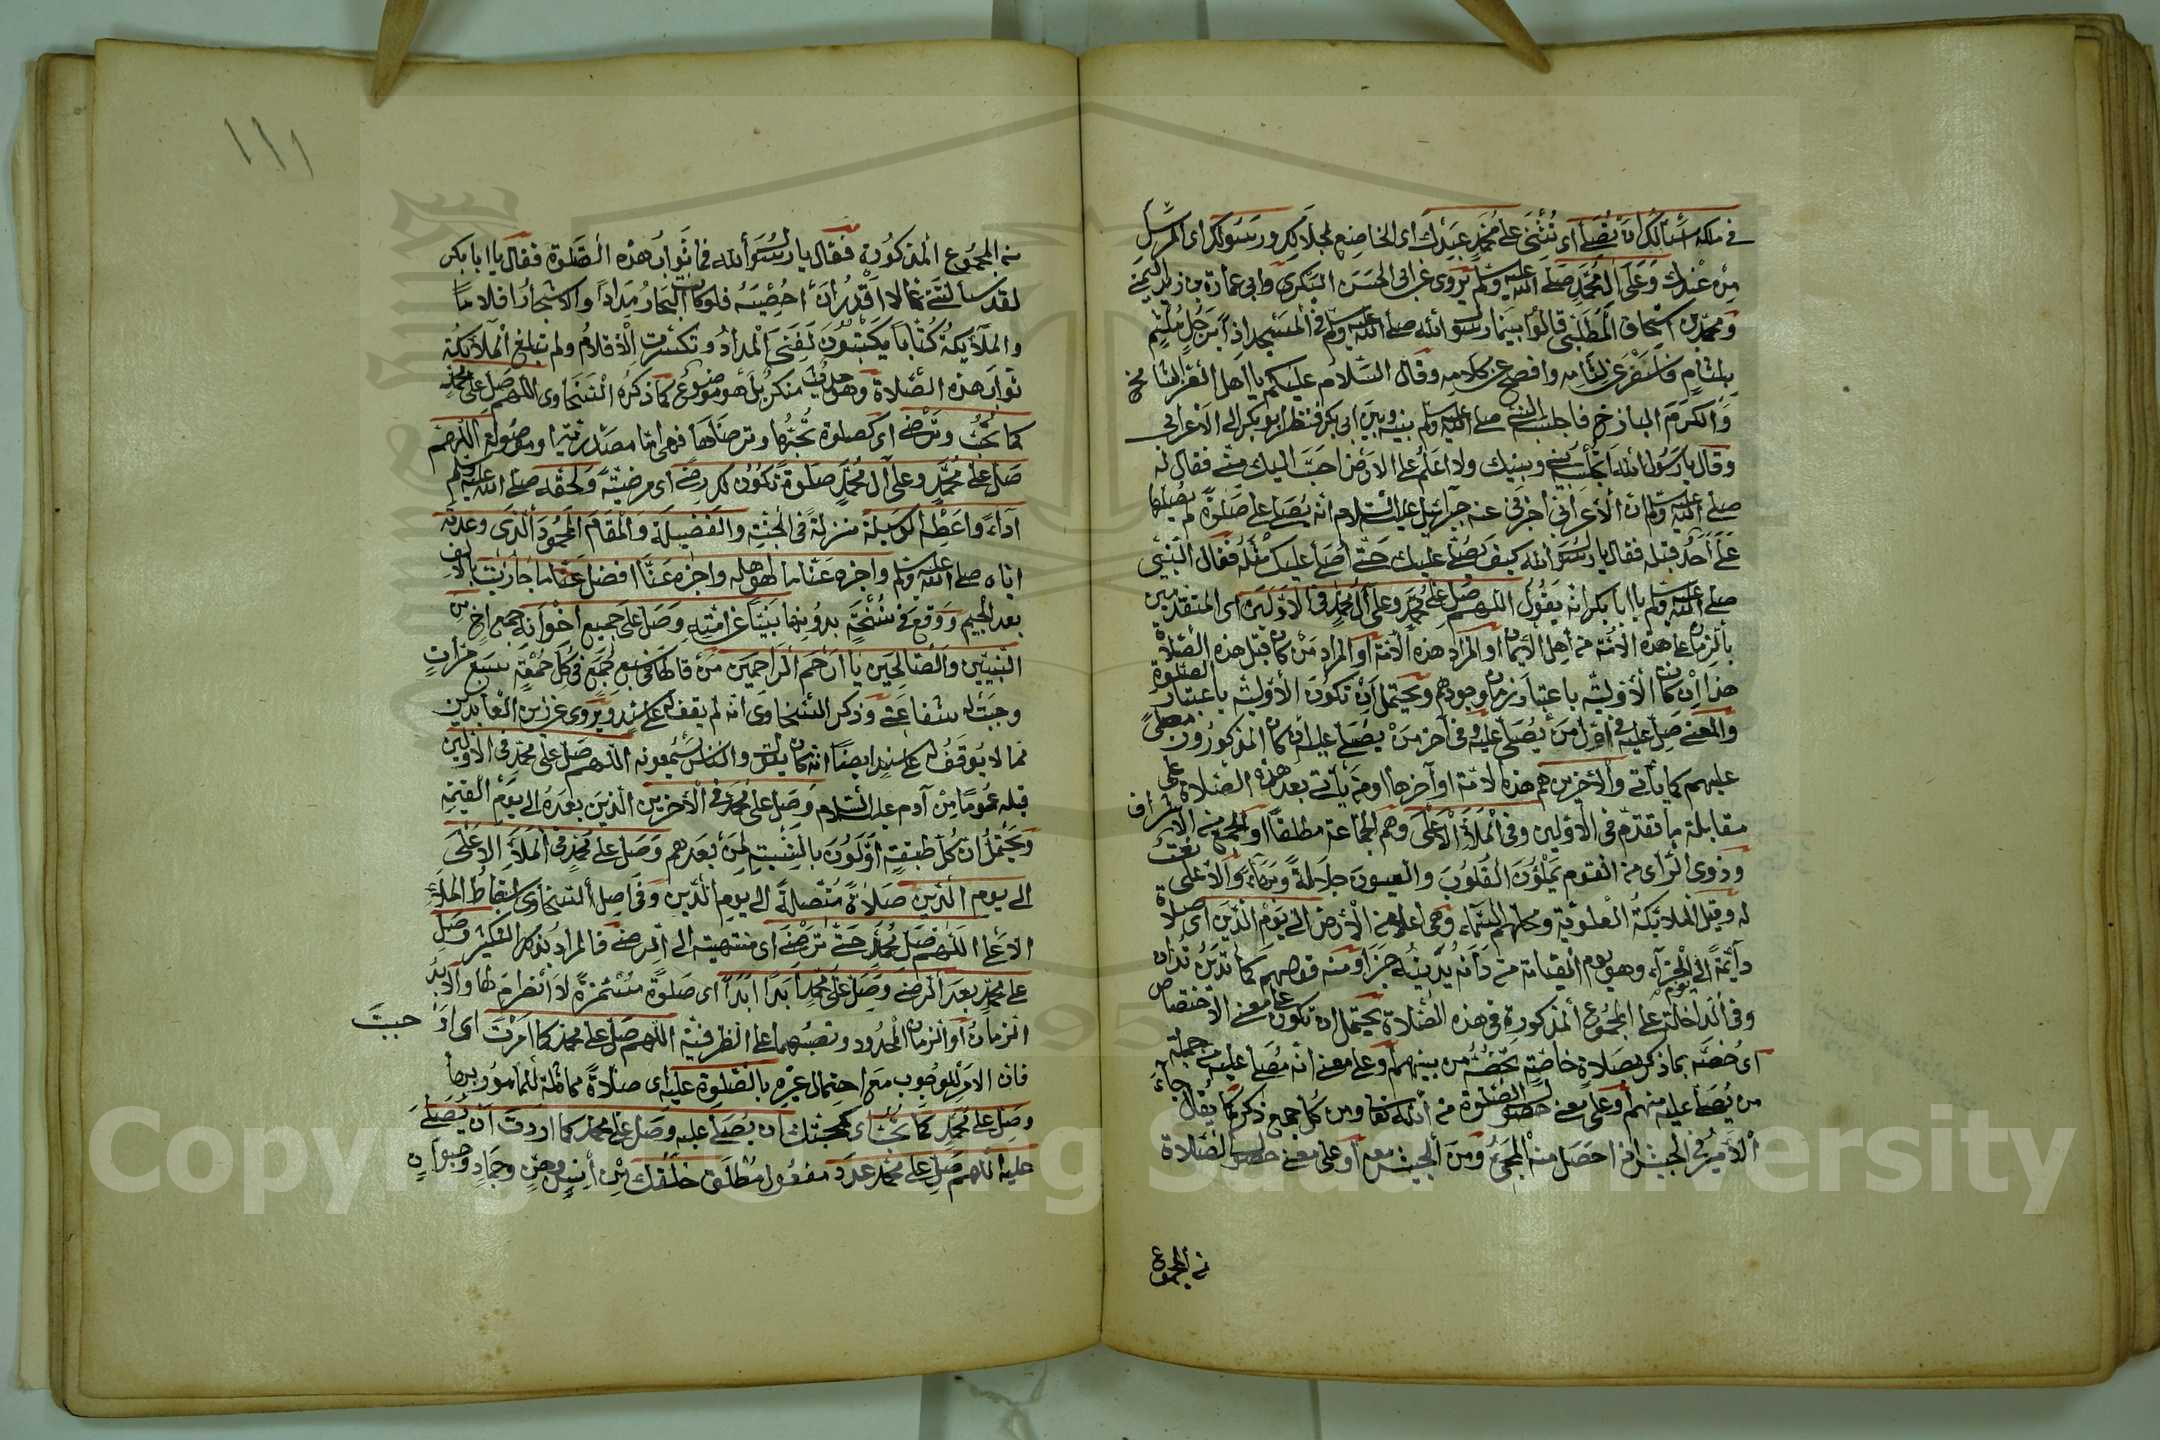 في ملكه اسألك ان تصلي اى تثنى على محمد عبدك اى الخاضع لجلالك ورسولك اى المرسل
من عندك وعلى آل محمد صلى الله عليه وسلم يروى عن ابى الحسن البكرى وابى عمارة بن زيد المدنى
ومحمد بن اسحاق المطلبى قالوا بينما رسول الله صلى الله عليه وسلم فى المسجد اذا برجل ملثم
بلثام فاسفر عن لثامه وافصح عن كلامه وقال السلام عليكم يا اهل العز الشامخ
والكرم الباذخ فاجلسه النبى صلى الله عليه وسلم بينه وبين ابى بكر فنظر ابو بكر الى الاعرابى
وقال يا رسول الله اتجلسه بينى وبينك ولا اعلم على الارض احب اليك منى فقال له
صلى الله عليه وسلم ان الاعرابى اخبرنى عنه جبرائيل عليه السلام انه يصلى على صلوة لم يصلها
على احد قبله فقال يا رسول الله كيف يصلى عليك حتى اصلى عليك مثله فقال النبى
صلى الله عليه وسلم يا ابا بكر انه يقول اللهم صل على محمد وعلى آل محمد فى الاولين اى المتقدمين
بالزمان على هذه الامة من اهل الايمان او المراد هذه الامة او المراد من كان قبل هذه الصلاة
هذا ان كان الاولية باعتبار زمان وجودهم ويحتمل ان تكون الاولية باعتبار الصلوة
والمعنى صل عليه فى اول من يصلى عليه وفى آخر من يصلى عليه ان كان المذكورون مصلى
عليهم كما يأتى والآخرين هم هذه الامة او آخرها او من يأتى بعد هذه الصلاة على
مقابلة ما تقدم فى الاولين وفى الملأ الاعلى وهم الجماعة مطلقا او الجمع من الاشراف
وذوى الراى من القوم يملؤن القلوب والعيون جلالة وبهاء والاعلى نعت
له وقيل الملائكة العلوية ومحلهم السماء وهى اعلى من الارض الى يوم الدين اى صلاة
دائمة الى يوم الجزاء وهو يوم القيامة من دانه يدينه جزاه ومنه قولهم كما تدين تدان
وفى الداخلة على المجموع المذكورة فى هذه الصلاة يحتمل ان تكون على معنى الاختصاص
اى خصه بما ذكر بصلاة خاصة تخصه من بينهم او على معنى انه مصلى عليه من جملة
من يصلى عليه منهم او على معنى حصول الصلوة من الله تعالى ومن كل جمع ذكر كما يقال جاء
الامير فى الجيش اذا حصل منه المجئ ومن الجيش معه او على معنى حصول الصلاة
من المجموع
١١١
من المجموع المذكورة فقال يا رسول الله فما ثواب هذه الصلوة فقال يا ابا بكر
لقد سألتنى عما لا اقدر ان احصيه فلو كانت البحار مدادا والاشجار اقلاما
والملائكة كتابا يكتبون لفنى المداد وتكسرت الاقلام ولم تبلغ الملائكة
ثواب هذه الصلاة وهو حديث منكر بل هو موضوع كما ذكره السخاوى اللهم صل على محمد
كما تحب وترضى اى كصلوة تحبها وترضاها فهى اما مصدرية او موصولة اللهم
صل على محمد وعلى آل محمد صلوة تكون لك رضى اى مرضية ولحقه صلى الله عليه وسلم
اداء واعطه الوسيلة منزلة فى الجنة والفضيلة والمقام المحمود الذى وعدته
اياه صلى الله عليه وسلم واجزه عنا ما هو اهله واجزه عنا افضل ما جازيت بالف
بعد الجيم ووقع فى نسخة بدونها نبيا عن امته وصل على جميع اخوانه جمع اخ من
النبيين والصالحين يا ارحم الراحمين من قالها فى سبع جمع فى كل جمعة سبع مرات
وجبت له شفاعتى وذكر السخاوى انه لم يقف له على سند ويروى عن زين العابدين
مما لا يوقف له على سند ايضا انه كان يقول والناس يسمعونه اللهم صل على محمد فى الاولين
قبله عموما من آدم عليه السلام وصل على محمد فى الآخرين الذين بعده الى يوم القيمة
ويحتمل ان كل طبقة اولون بالنسبة لمن بعدهم وصل على محمد فى الملأ الاعلى
الى يوم الدين صلاة متصلة الى يوم الدين وفى اصل السخاوى اسقاط الملأ
الاعلى اللهم صل على محمد حتى ترضى اى منتهية الى الرضى فالمراد بذكر التكثير وصل
على محمد بعد الرضى وصل على محمد ابدا ابدا اى صلوة مستمرة لا انصرام لها والابد
الزمان او الزمان المحدود ونصبهما على الظرفية اللهم صل على محمد كما امرت اى اوجبت
فان الامر للوجوب مع احتمال غيره بالصلوة عليه اى صلاة مماثلة للمامور بها
وصل على محمد كما تحب اى كمحبتك ان يصلى عليه وصل على محمد كما اردت ان يصلى
عليه اللهم صل على محمد عدد مفعول مطلق خلقك من انس وجن وجماد وحيوان